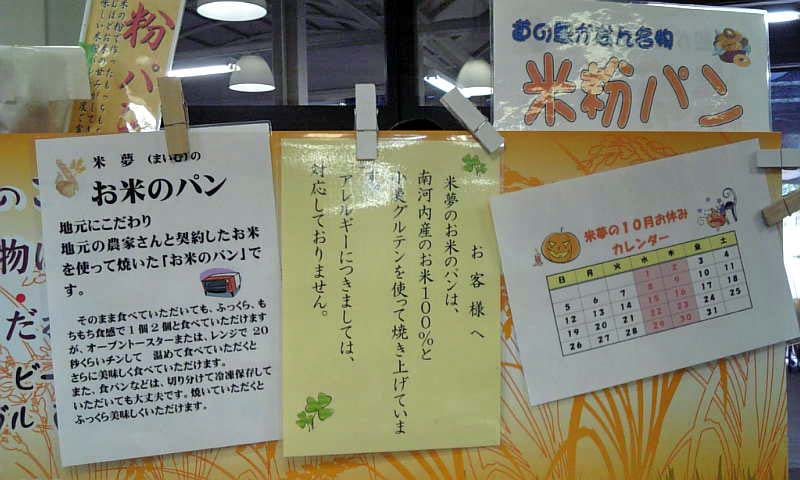 粉パン
あの風かおん名物
米粉パン
米夢(まいむ)の
お米のパン
地元にこだわり
地元の農家さんと契約したお米
を使って焼いた「お米のパン」で
す。
そのまま食べていただいても、ふっくら、も
ちもち食感で1個2個と食べていただけます
が、オーブントースターまたは、レンジで20
秒くらいチンして 温めて食べていただくと
さらに美味しく食べていただけます。
また、食パンなどは、切り分けて冷凍保存して
いただいても大丈夫です。焼いていただくと
ふっくら美味しくいただけます。
お客様へ
米夢のお米のパンは、
南河内産のお米100%と
小麦グルテンを使って焼き上げていま
す。
アレルギーにつきましては、
対応しておりません。
米夢の10月お休み
カレンダー
日 月 火 水 木 金 土
1 2 3 4
5 6 7 8 9 10 11
12 13 14 15 16 17 18
19 20 21 22 23 24 25
26 27 28 29 30 31